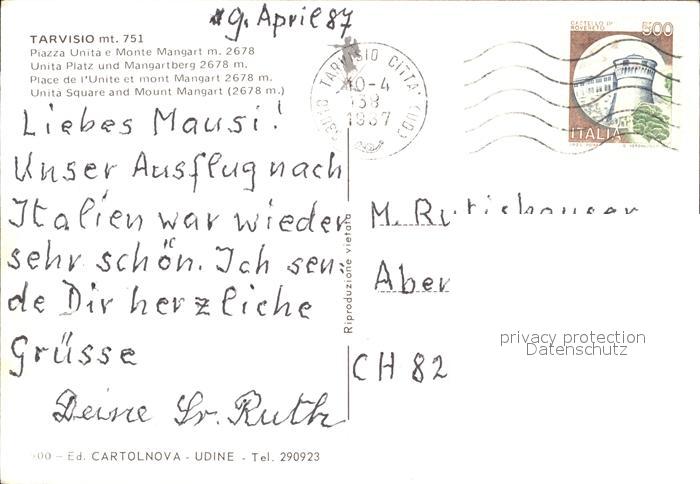 9. April 87
TARVISIO mt. 751
Piazza Unita e Monte Mangart m. 2678
Unita Platz und Mangartberg 2678 m.
Place de l'Unite et mont Mangart 2678 m.
Unita Square and Mount Mangart (2678 m.)
Liebes Mausi!
Unser Ausflug nach
Italien war wieder
sehr schön. Ich sen-
de Dir herzliche
Grüsse
Deine Sr. Ruth
00 - Ed. CARTOLNOVA - UDINE - Tel. 290923
Riproduzione vietata
TARVISIO CITTA'
10-4
1987
CASTELLO DI
ROVERETO
500
ITALIA
M. Rutishauser
Aber
CH 82
privacy protection
Datenschutz